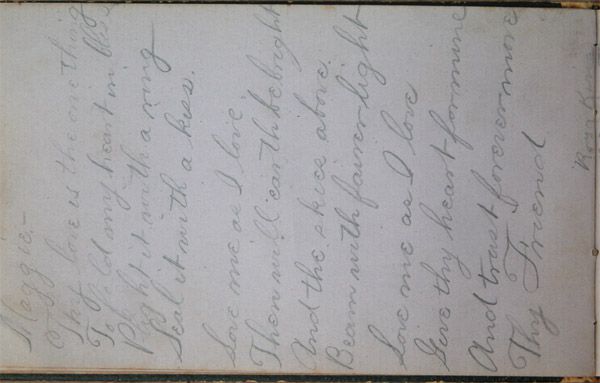 Maggie,—
Thy love is the one thing
To fold my heart in bliss
Plight it with a ring
Seal it with a kiss.
Love me as I love
Then will earth be bright
And the skies above.
Beam with fairer light
Love me as I love
Give thy heart for mine
And trust forever more
Thy Friend
Rosa